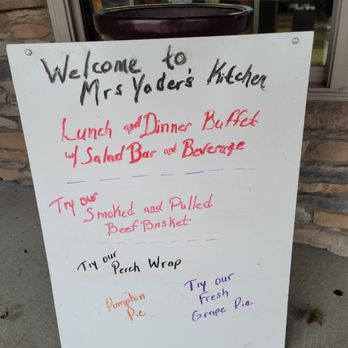 Welcome to
Mrs Yoder's Kitchen
Lunch and Dinner Buffet
w/ Salad Bar and Beverage
Try our
Smoked and Pulled
Beef Brisket
Try our
Perch Wrap
Pumpkin
Pie
Try our
Fresh
Grape Pie